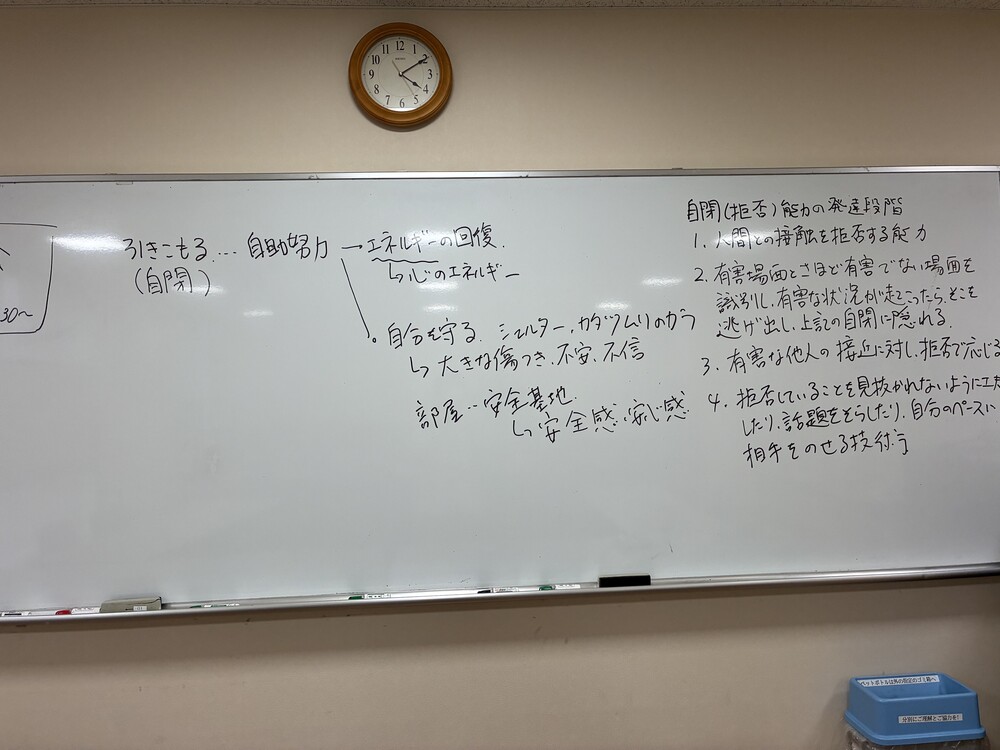 12
11
1
10
2
9
3
8
4
7
5
6
SEIKO
30〜
引きこもる…. 自助努力 →エネルギーの回復.
(自閉)
↳心のエネルギー
。自分を守る. シェルター, カタツムリのカラ
↳ 大きな傷つき、不安、不信
部屋‥安全基地.
↳安全感、安心感
自閉(拒否)能力の発達段階
1. 人間との接触を拒否する能力
2. 有害場面とさほど有害でない場面を
識別し、有害な状況が起こったら、そこを
逃げ出し、上記の自閉に隠れる.
3. 有害な他人の接近に対し、拒否で応じる
4. 拒否していることを見抜かれないように工夫
したり、話題をそらしたり、自分のペースに
相手をのせる技術
ペットボトルは外の指定のゴミ箱へ
分別にご理解とご協力を!